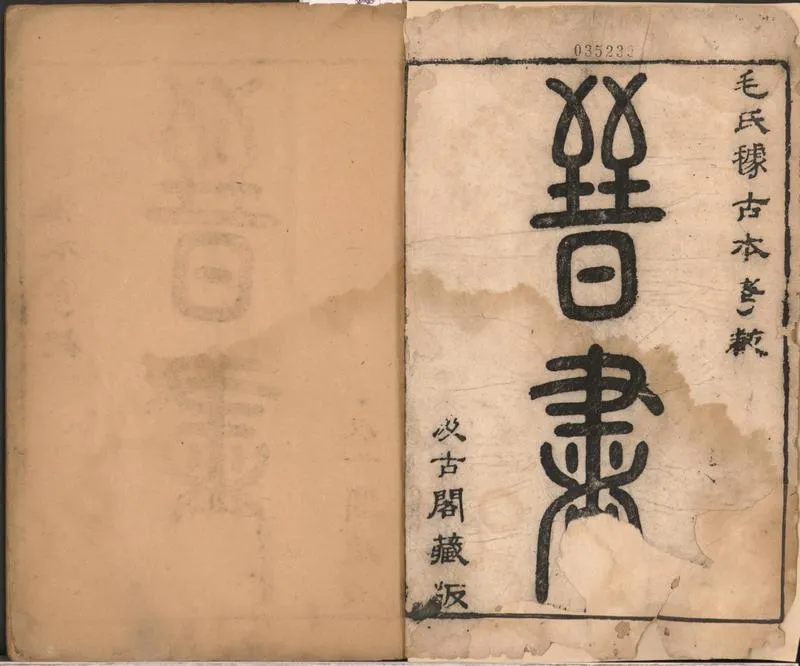 035233
毛氏據古本考較
晉書
汲古閣藏版